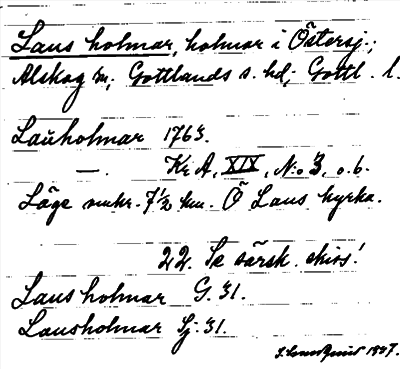 Laus holmar, holmar i Östersj.;
Alskog sn; Gottlands s. hd; Gottl. l.
Lauholmar 1763.
— Kr A, XIX, N:o 3, o.b.
Läge omkr. 7 1/2 km. Ö Laus kyrka.
22. Se särsk. skiss!
Laus holmar G. 31.
Lausholmar Sj. 31.
1937.